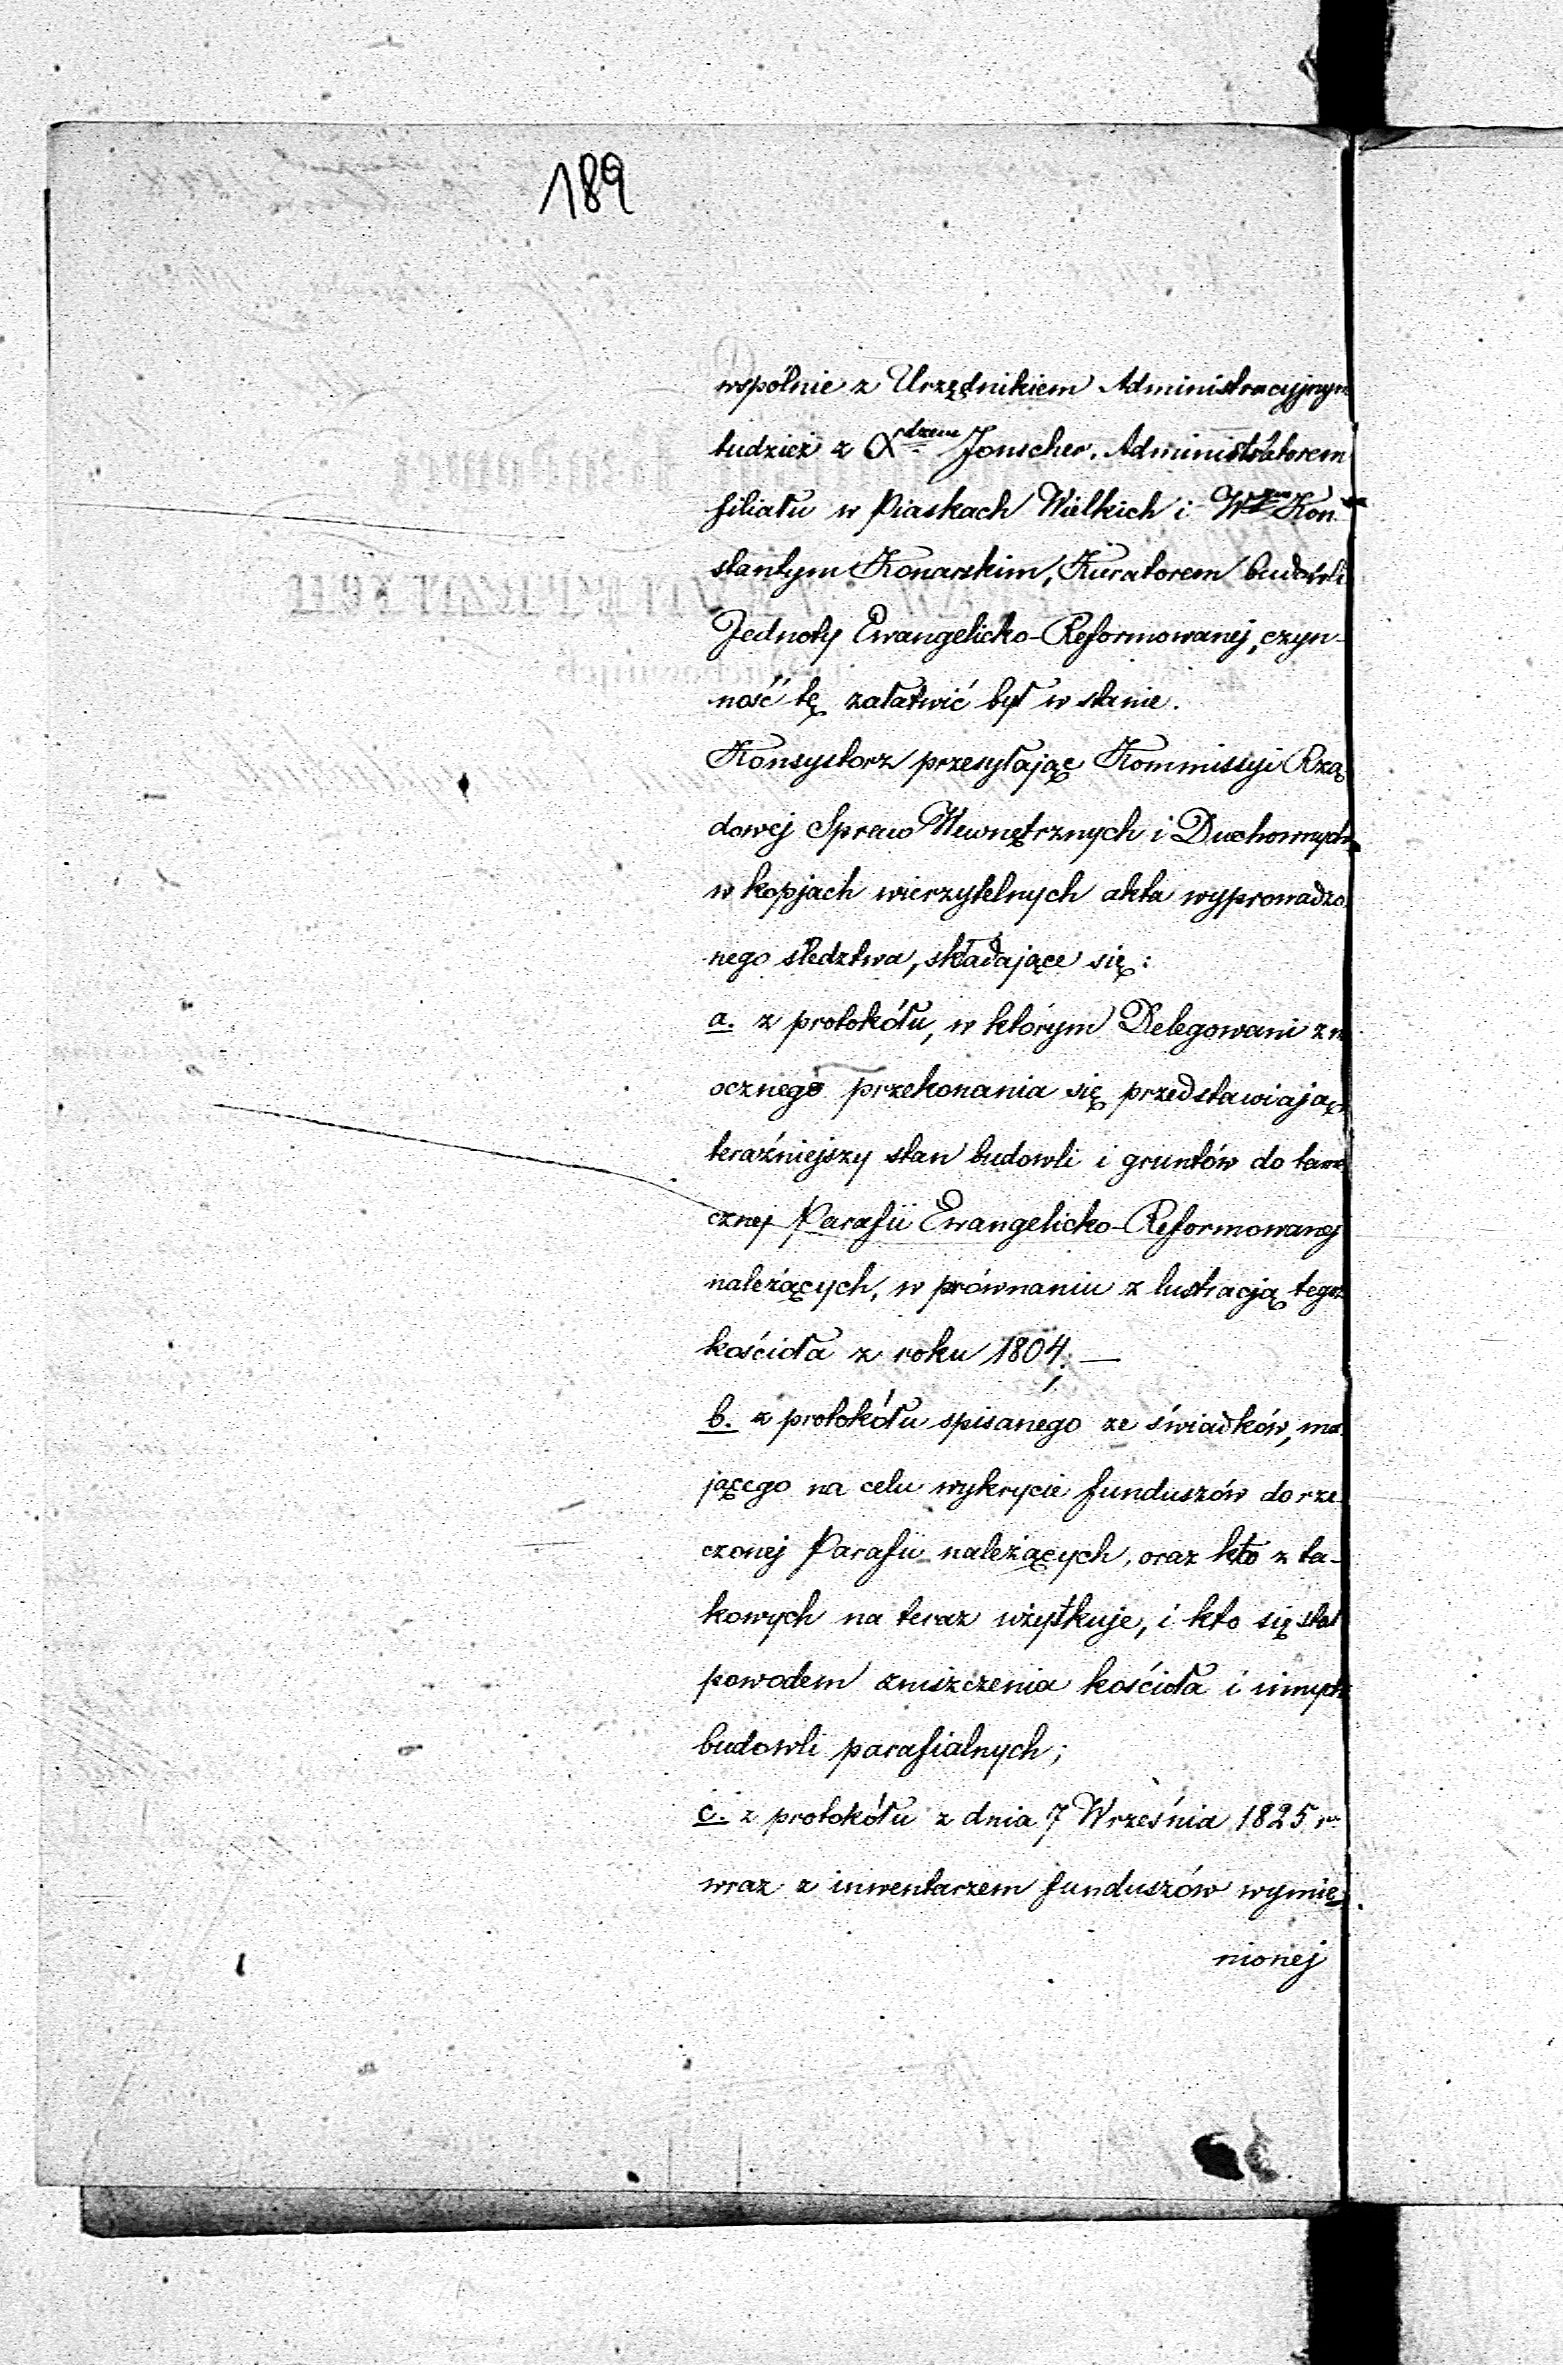 189
wspólnie z Urzędnikiem Administracyjnym
tudzież z Xdzem Jonscher, Administratorem
filiału w Piaskach Wielkich i Wym Kon
stantym Konarskim, Kuratorem budowli
Jednoty Ewangelicko-Reformowanej, czyn-
ność tę załatwić był w stanie.
Konsystorz przesyłając Kommissyi Rzą
dowej Spraw Wewnętrznych i Duchownych
w kopjach wierzytelnych akta wyprowadzo
nego śledztwa, składające się:
a. z protokółu, w którym Delegowani z n
ocznego przekonania się przedstawiają
teraźniejszy stan budowli i gruntów do tame
cznej Parafii Ewangelicko-Reformowanej
należących, w prównaniu z lustracją tegoż
kościoła z roku 1804; —
b. z protokółu spisanego ze świadków, ma
jącego na celu wykrycie funduszów do rze
czonej Parafii należących, oraz kto z ta-
kowych na teraz użytkuje, i kto się stał
powodem zniszczenia kościoła i innych
budowli parafialnych;
c. z protokółu z dnia 7 Września 1825 r.
wraz z inwentarzem funduszów wymie
nionej